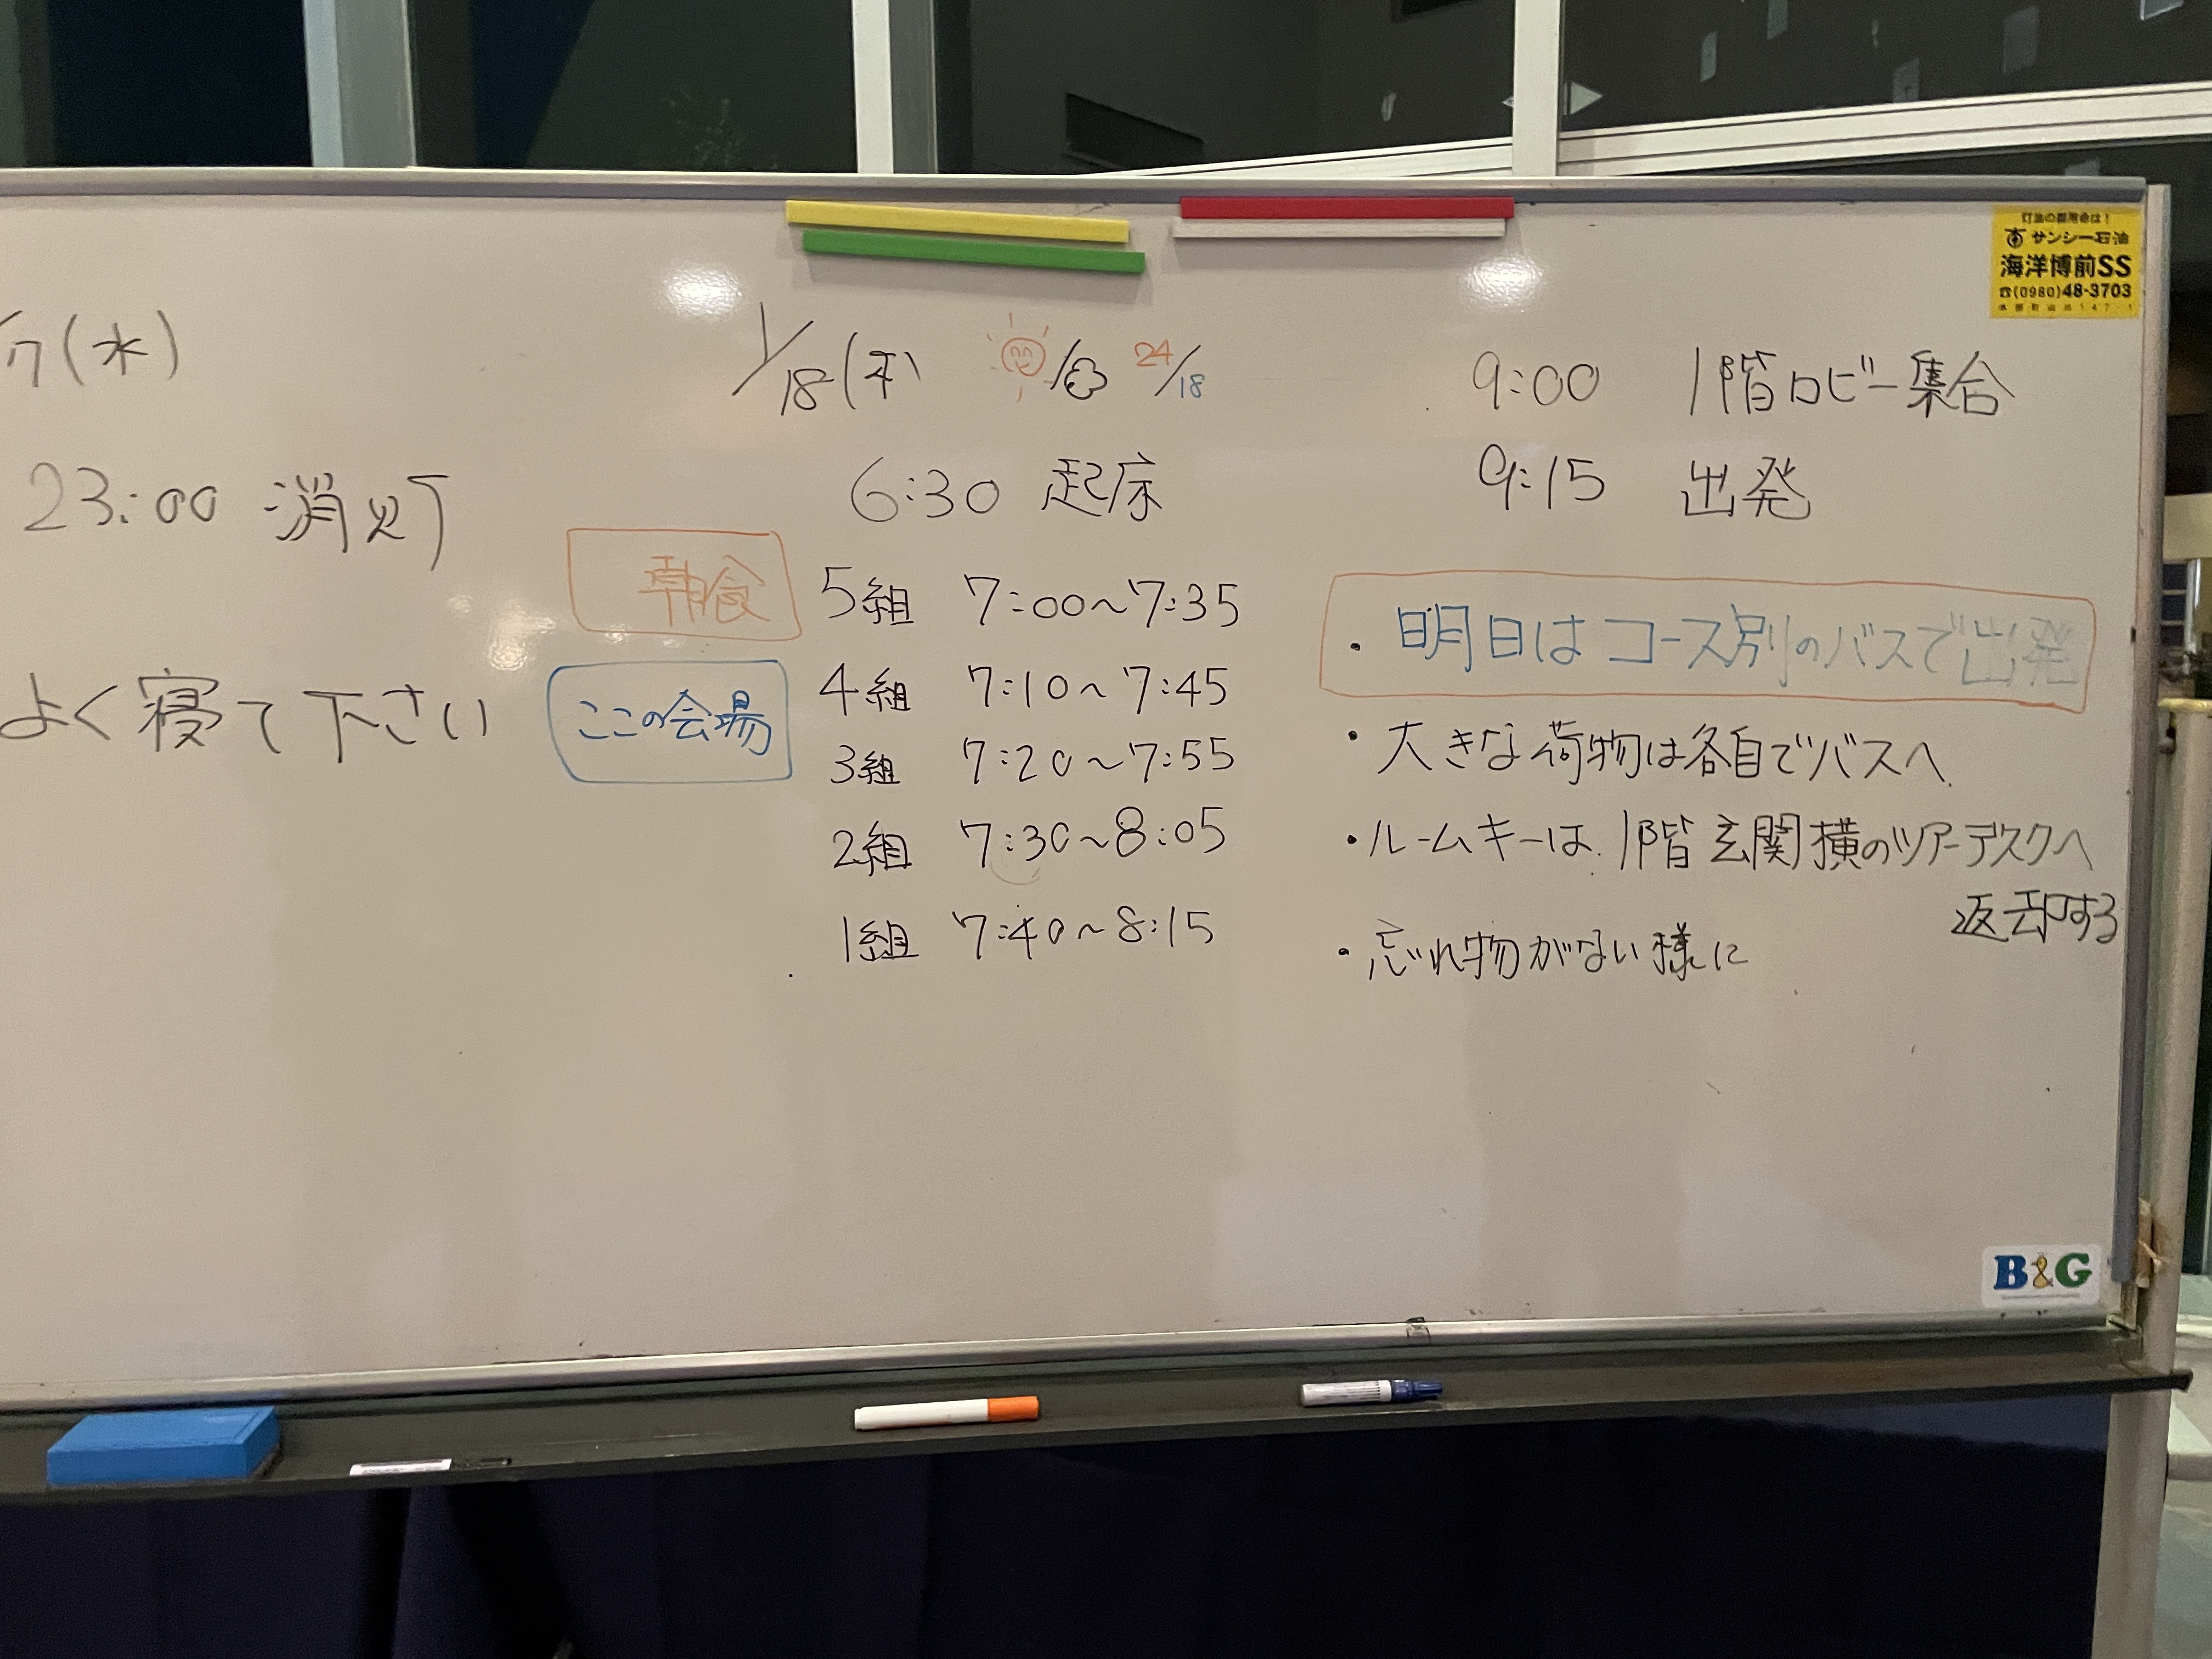 /17(水)
23:00 消灯
よく寝て下さい
1/18(木) 24/18
6:30 起床
朝食
ここの会場
5組 7:00〜7:35
4組 7:10〜7:45
3組 7:20〜7:55
2組 7:30〜8:05
1組 7:40〜8:15
9:00 1階ロビー集合
9:15 出発
・明日はコース別のバスで出発
・大きな荷物は各自でバスへ
・ルームキーは、1階玄関横のツアーデスクへ
返却する
・忘れ物がない様に
灯油の御用命は！
サンシー石油
海洋博前SS
☎(0980)48-3703
B&G